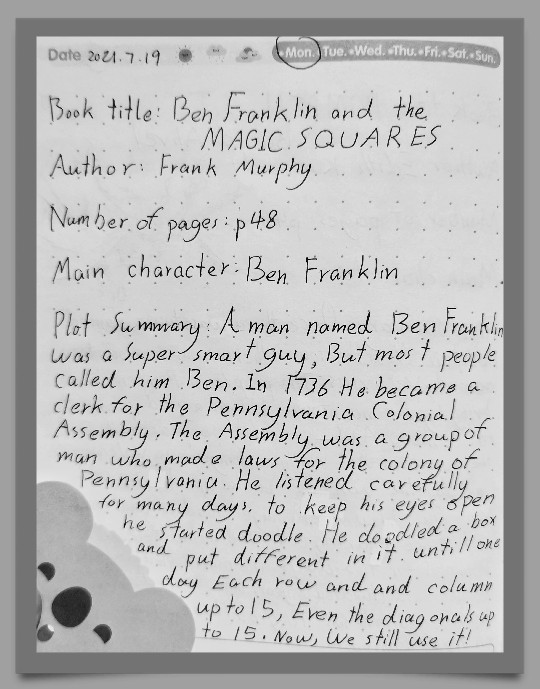 Date 2021.7.19 Mon. Tue. Wed. Thu. Fri. Sat. Sun.
Book title: Ben Franklin and the
MAGIC SQUARES
Author: Frank Murphy
Number of pages: p48
Main character: Ben Franklin
Plot Summary: A man named Ben Franklin
was a super smart guy, But most people
called him Ben. In 1736 He became a
clerk for the Pennsylvania Colonial
Assembly. The Assembly was a group of
man who made laws for the colony of
Pennsylvania. He listened carefully
for many days. to keep his eyes open
he started doodle. He doodled a box
and put different in it. untill one
day Each row and and column
up to 15, Even the diagonals up
to 15. Now, We still use it!